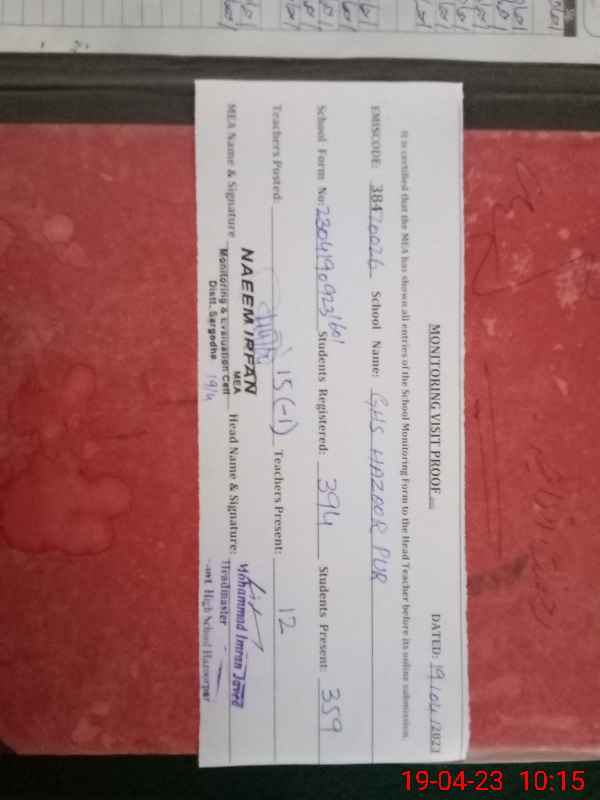 MONITORING VISIT PROOF
DATED: 19/04/2023
It is certified that the MEA has shown all entries of the School Monitoring Form to the Head Teacher before its online submission.
EMISCODE: 38420026 School Name: GHS HAZOOR PUR
School Form No: 23041909231601 Students Registered: 394 Students Present: 359
Teachers Posted: 15(-1) Teachers Present: 12
MEA Name & Signature Head Name & Signature:
NAEEM IRFAN
MEA
Monitoring & Evaluation Cell
Distt. Sargodha
19/4
Mohammad Imran Javed
Headmaster
Govt. High School Hazoorpur
19-04-23 10:15